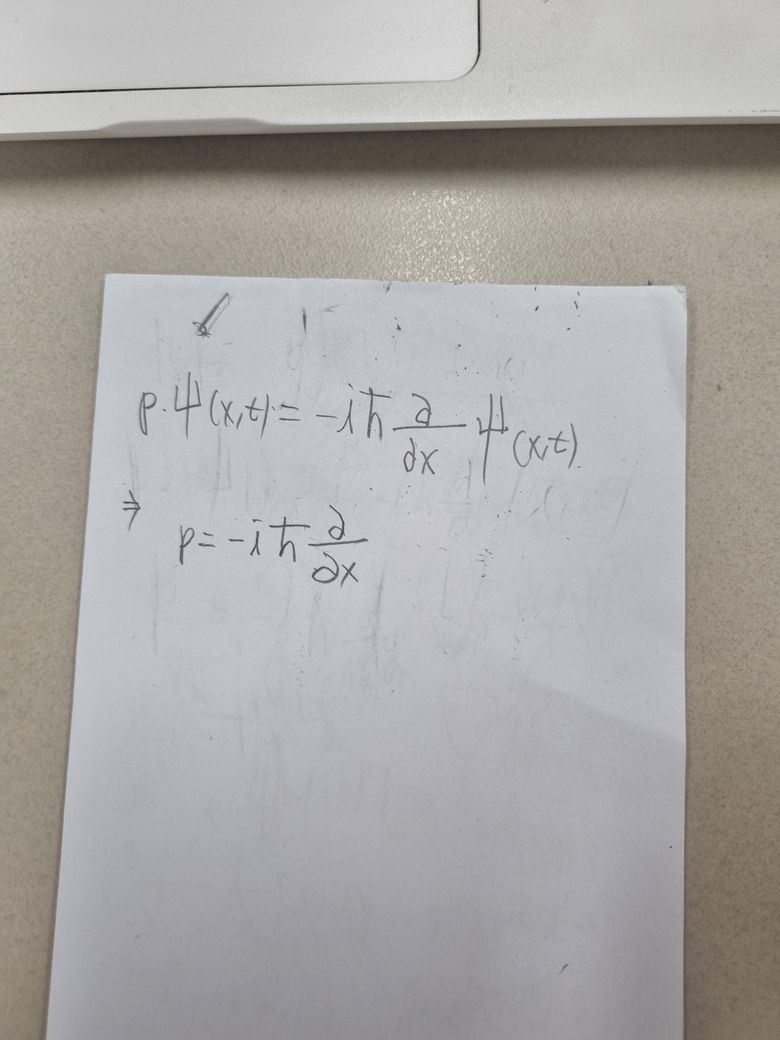 p·Ψ(x,t) = -iħ ∂/∂x Ψ(x,t).
⇒ p = -iħ ∂/∂x